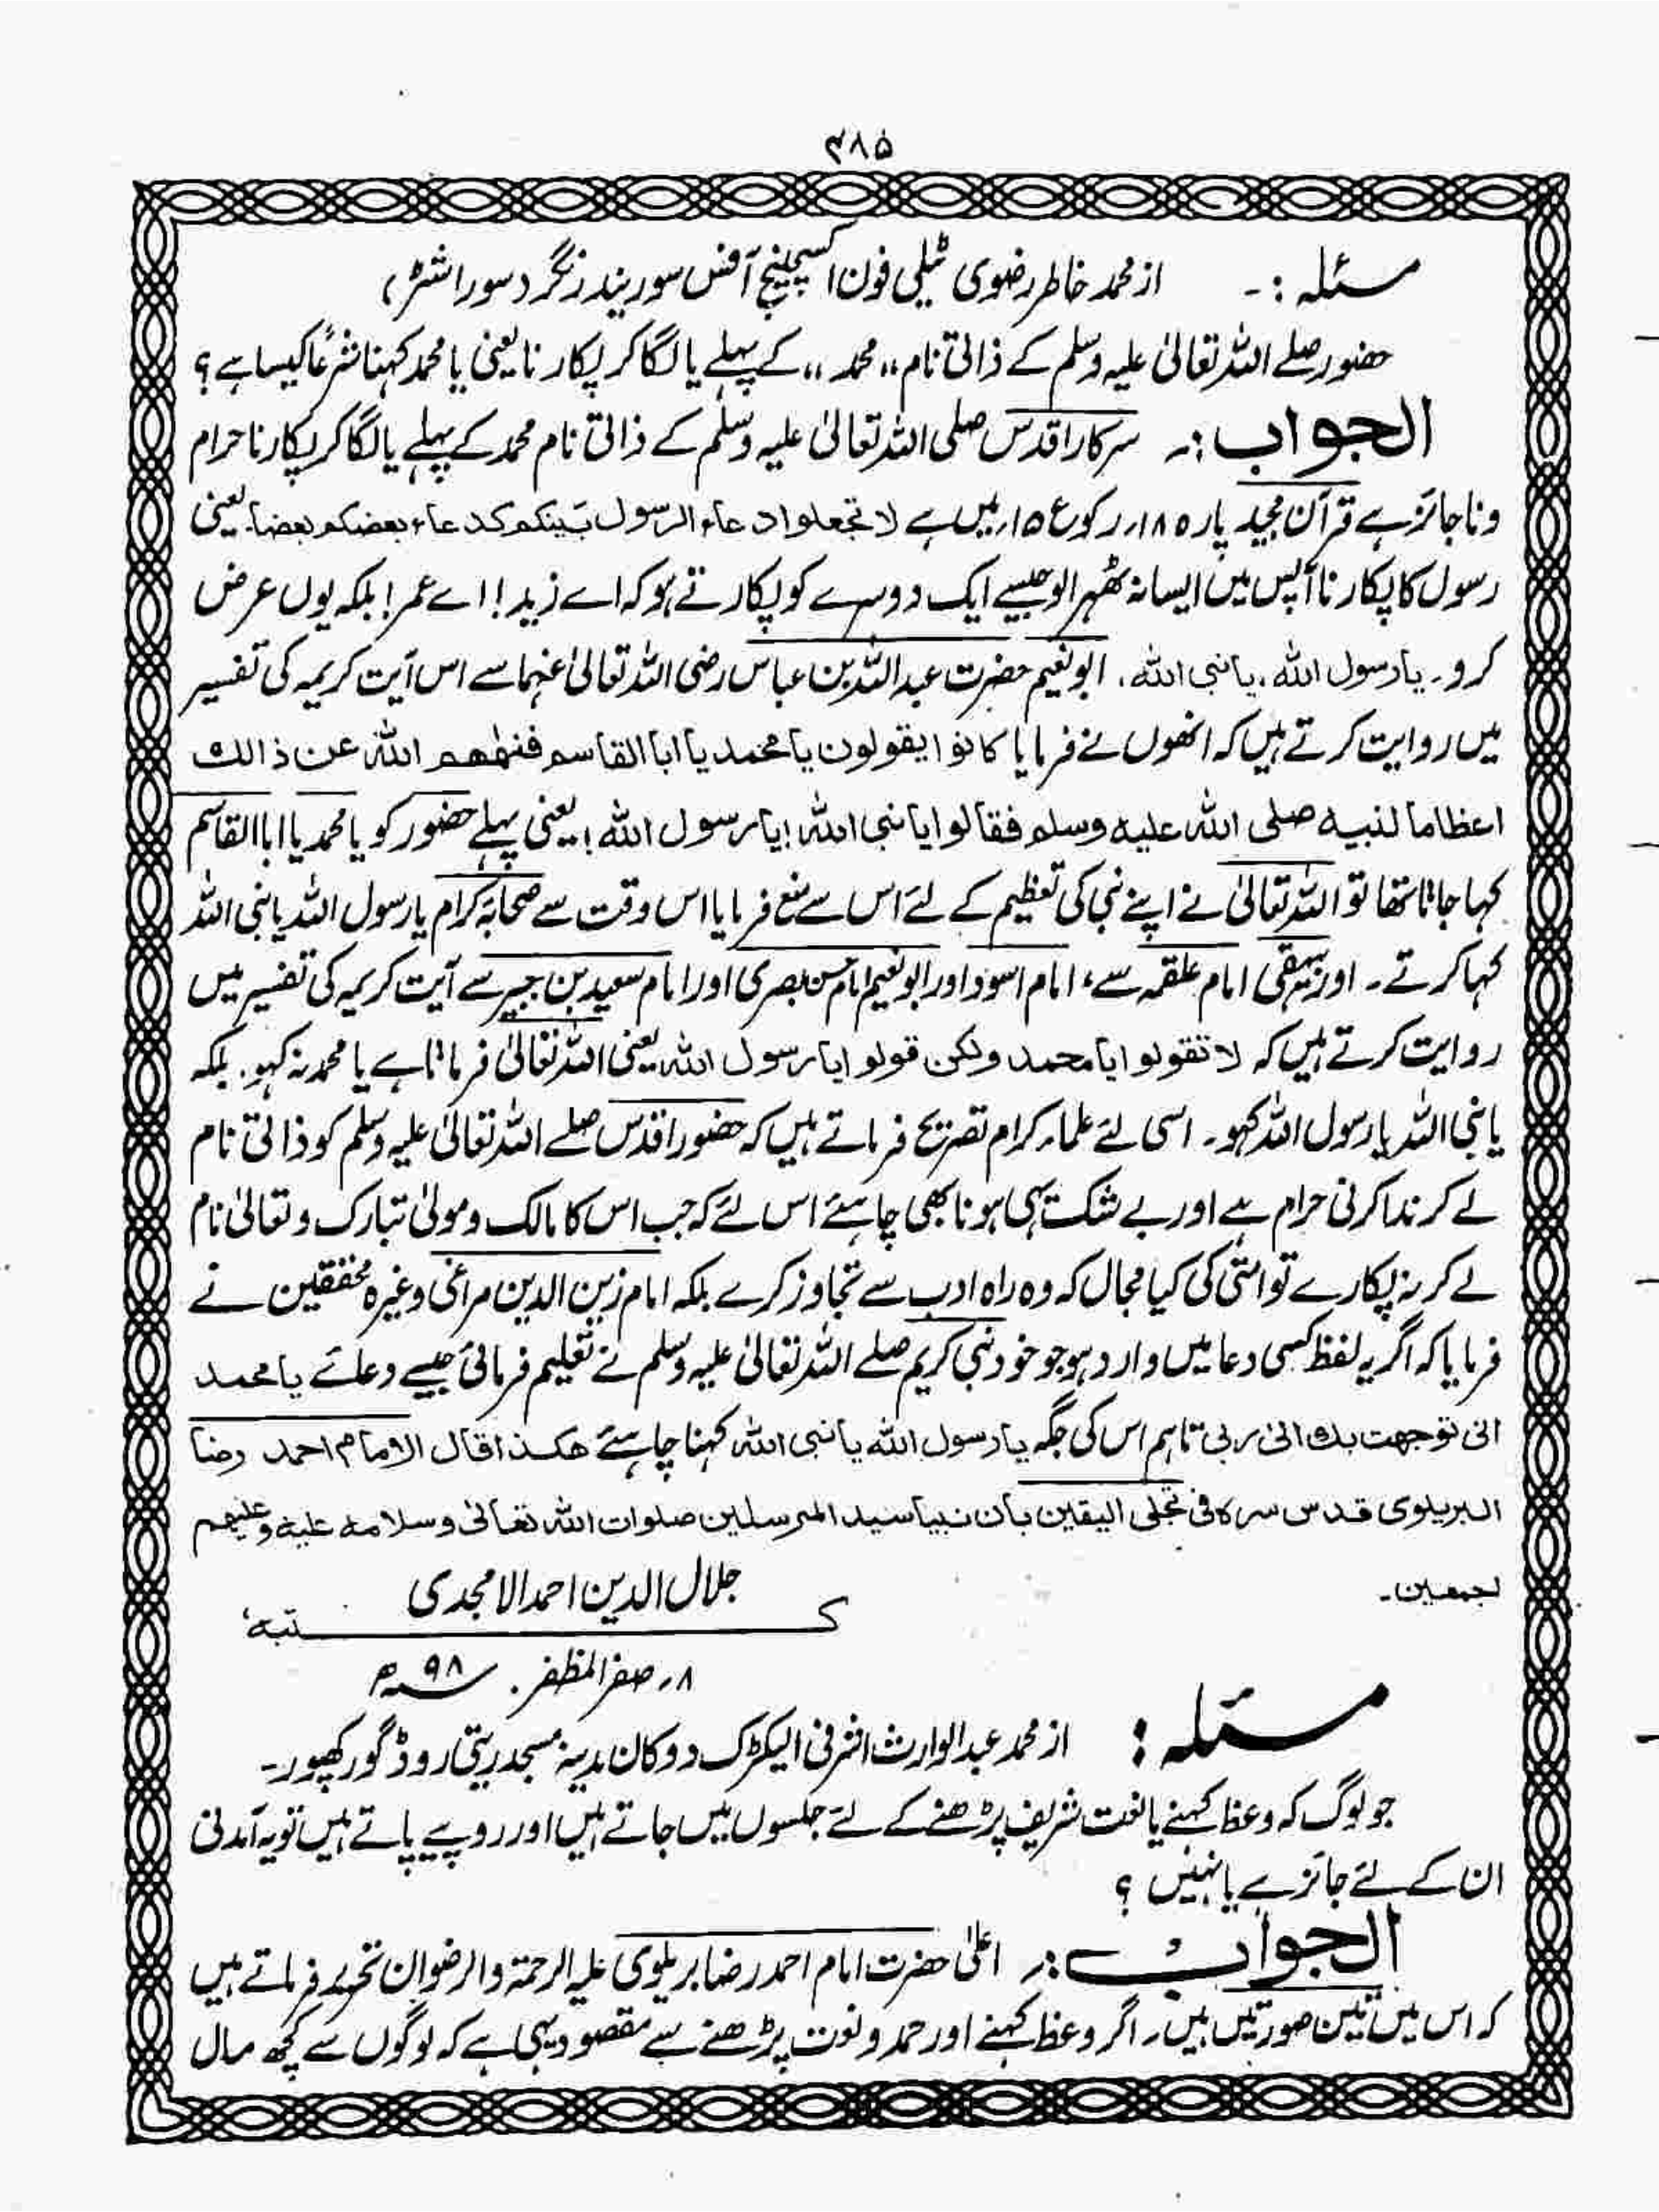 ۳۸۵
مسئلہ:۔ از محمد خاطر رضوی ٹیلی فون اکسچینج آفس سوریندر نگر (سوراشٹر)
حضور صلے اللہ تعالیٰ علیہ وسلم کے ذاتی نام ,, محمد ,, کے پہلے یا لگا کر پکارنا یعنی یا محمد کہنا شرعًا کیسا ہے؟
الجواب:۔ سرکار اقدس صلی اللہ تعالیٰ علیہ وسلم کے ذاتی نام محمد کے پہلے یا لگا کر پکارنا حرام
و ناجائز ہے قرآن مجید پارہ ۱۸، رکوع ۱۵ میں ہے لا تجعلوا دعاء الرسول بینکم کدعاء بعضکم بعضا۔ یعنی
رسول کا پکارنا آپس میں ایسا نہ ٹھہرالو جیسے ایک دوسرے کو پکارتے ہو کہ اے زید! اے عمر! بلکہ یوں عرض
کرو۔ یا رسول اللہ، یا نبی اللہ، ابو نعیم حضرت عبد اللہ بن عباس رضی اللہ تعالیٰ عنہما سے اس آیت کریمہ کی تفسیر
میں روایت کرتے ہیں کہ انھوں نے فرمایا کانوا یقولون یا محمد یا ابا القاسم فنھٰھم اللہ عن ذالک
اعظاما لنبیہ صلی اللہ علیہ وسلم فقالوا یا نبی اللہ! یا رسول اللہ! یعنی پہلے حضور کو یا محمد یا ابا القاسم
کہا جاتا تھا تو اللہ تعالیٰ نے اپنے نبی کی تعظیم کے لئے اس سے منع فرمایا اس وقت سے صحابۂ کرام یا رسول اللہ یا نبی اللہ
کہا کرتے۔ اور بیہقی امام علقمہ سے، امام اسود اور ابو نعیم امام حسن بصری اور امام سعید بن جبیر سے آیت کریمہ کی تفسیر میں
روایت کرتے ہیں کہ لا تقولوا یا محمد ولکن قولوا یا رسول اللہ یعنی اللہ تعالیٰ فرماتا ہے یا محمد نہ کہو۔ بلکہ
یا نبی اللہ یا رسول اللہ کہو۔ اسی لئے علماء کرام تصریح فرماتے ہیں کہ حضور اقدس صلے اللہ تعالیٰ علیہ وسلم کو ذاتی نام
لے کر ندا کرنی حرام ہے اور بے شک یہی ہونا بھی چاہئے اس لئے کہ جب اس کا مالک و مولیٰ تبارک و تعالیٰ نام
لے کر نہ پکارے تو امتی کی کیا مجال کہ وہ راہ ادب سے تجاوز کرے بلکہ امام زین الدین مراغی وغیرہ محققین نے
فرمایا کہ اگر یہ لفظ کسی دعا میں وارد ہو جو خود نبی کریم صلے اللہ تعالیٰ علیہ وسلم نے تعلیم فرمائی جیسے دعائے یا محمد
انی توجھت بک الیٰ ربی تاہم اس کی جگہ یا رسول اللہ یا نبی اللہ کہنا چاہئے ھکذا قال الامام احمد رضا
البریلوی قدس سرہ فی تجلی الیقین بان نبینا سید المرسلین صلوات اللہ تعالیٰ وسلامہ علیہ وعلیھم
اجمعین۔
جلال الدین احمد الامجدی
کتبہ
۸، صفر المظفر ۹۸ھ
مسئلہ: از محمد عبد الوارث اشرفی الیکٹرک دوکان مدینہ مسجد ریتی روڈ گورکھپور۔
جو لوگ کہ وعظ کہنے یا نعت شریف پڑھنے کے لئے جلسوں میں جاتے ہیں اور روپیے پاتے ہیں تو یہ آمدنی
ان کے لئے جائز ہے یا نہیں؟
الجواب:۔ اعلیٰ حضرت امام احمد رضا بریلوی علیہ الرحمۃ والرضوان تحریر فرماتے ہیں
کہ اس میں تین صورتیں ہیں۔ اگر وعظ کہنے اور حمد و نعت پڑھنے سے مقصود یہی ہے کہ لوگوں سے کچھ مال